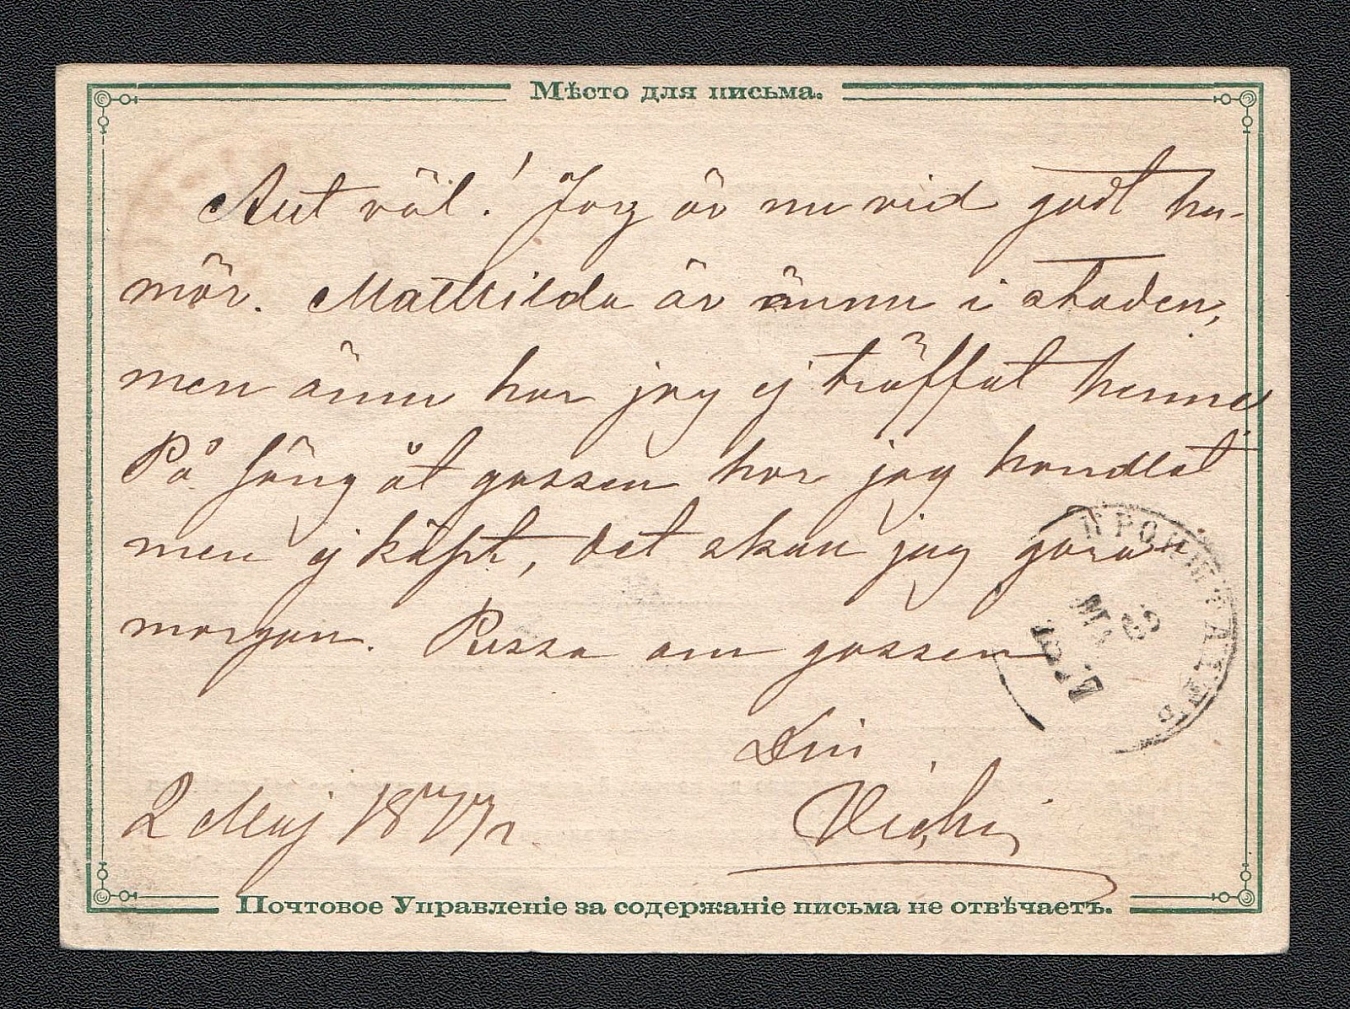 Мѣсто для письма.
Allt väl! Jag är nu vid godt hu-
mör. Mathilda är ännu i staden,
men ännu har jag ej träffat henne
På säng åt gossen har jag handlat
men ej köpt, det skall jag göra
morgon. Pussa om gossen
Din
2 Maj 1877
КРОНШТАДТЪ
Почтовое Управленіе за содержаніе письма не отвѣчаетъ.